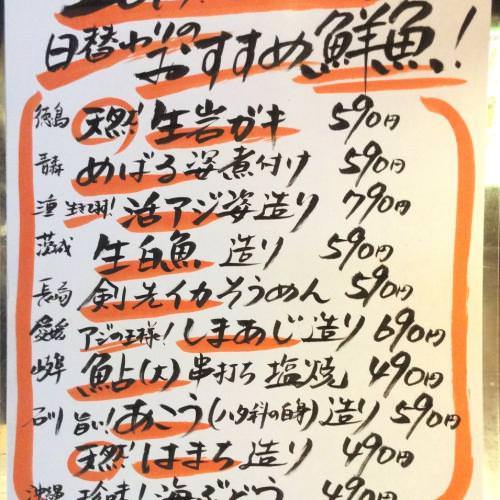 日替わりの
おすすめ鮮魚!
徳島 天然! 生岩ガキ 590円
青森 めばる姿煮付け 590円
三重 生きてる羽! 活アジ姿造り 790円
茨城 生白魚 造り 590円
長崎 剣先イカそうめん 590円
愛媛 アジの王様! しまあじ造り 690円
岐阜 鮎(大)串打ち 塩焼 490円
石川 旨い! あこう(ハタ科の白身)造り 590
天然! はまち造り 490円
沖縄 珍味! 海ぶどう 490円